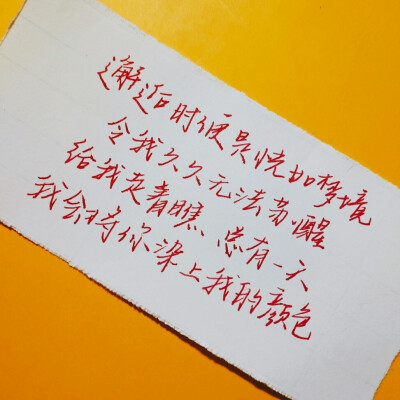 邂逅时便是恍如梦境
令我久久无法苏醒
给我走着瞧 总有一天
我会将你染上我的颜色